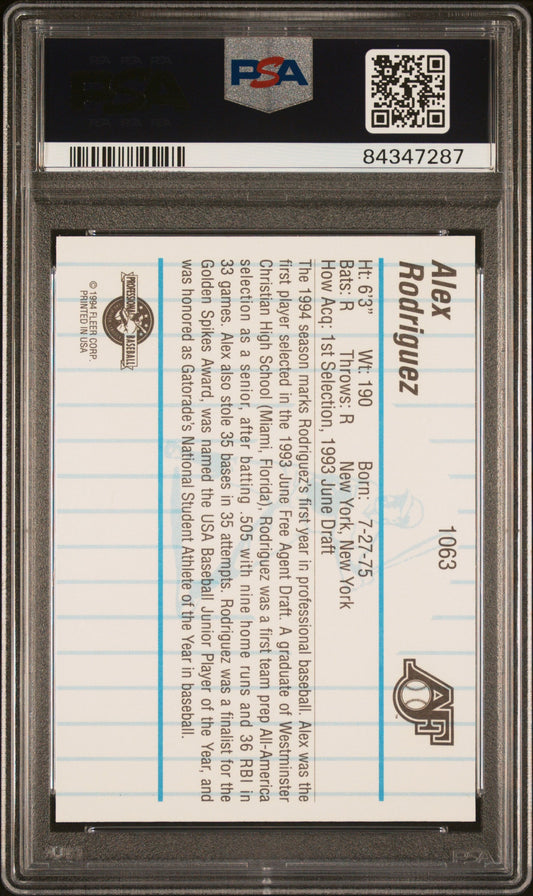 PSA
84347287
Alex
Rodriguez
1063
Ht: 6'3" Wt: 190 Born: 7-27-75
Bats: R Throws: R New York, New York
How Acq: 1st Selection, 1993 June Draft
The 1994 season marks Rodriguez's first year in professional baseball. Alex was the
first player selected in the 1993 June Free Agent Draft. A graduate of Westminster
Christian High School (Miami, Florida), Rodriguez was a first team prep All-America
selection as a senior, after batting .505 with nine home runs and 36 RBI in
33 games. Alex also stole 35 bases in 35 attempts. Rodriguez was a finalist for the
Golden Spikes Award, was named the USA Baseball Junior Player of the Year, and
was honored as Gatorade's National Student Athlete of the Year in baseball.
PROFESSIONAL BASEBALL
© 1994 FLEER CORP.
PRINTED IN USA
PSA